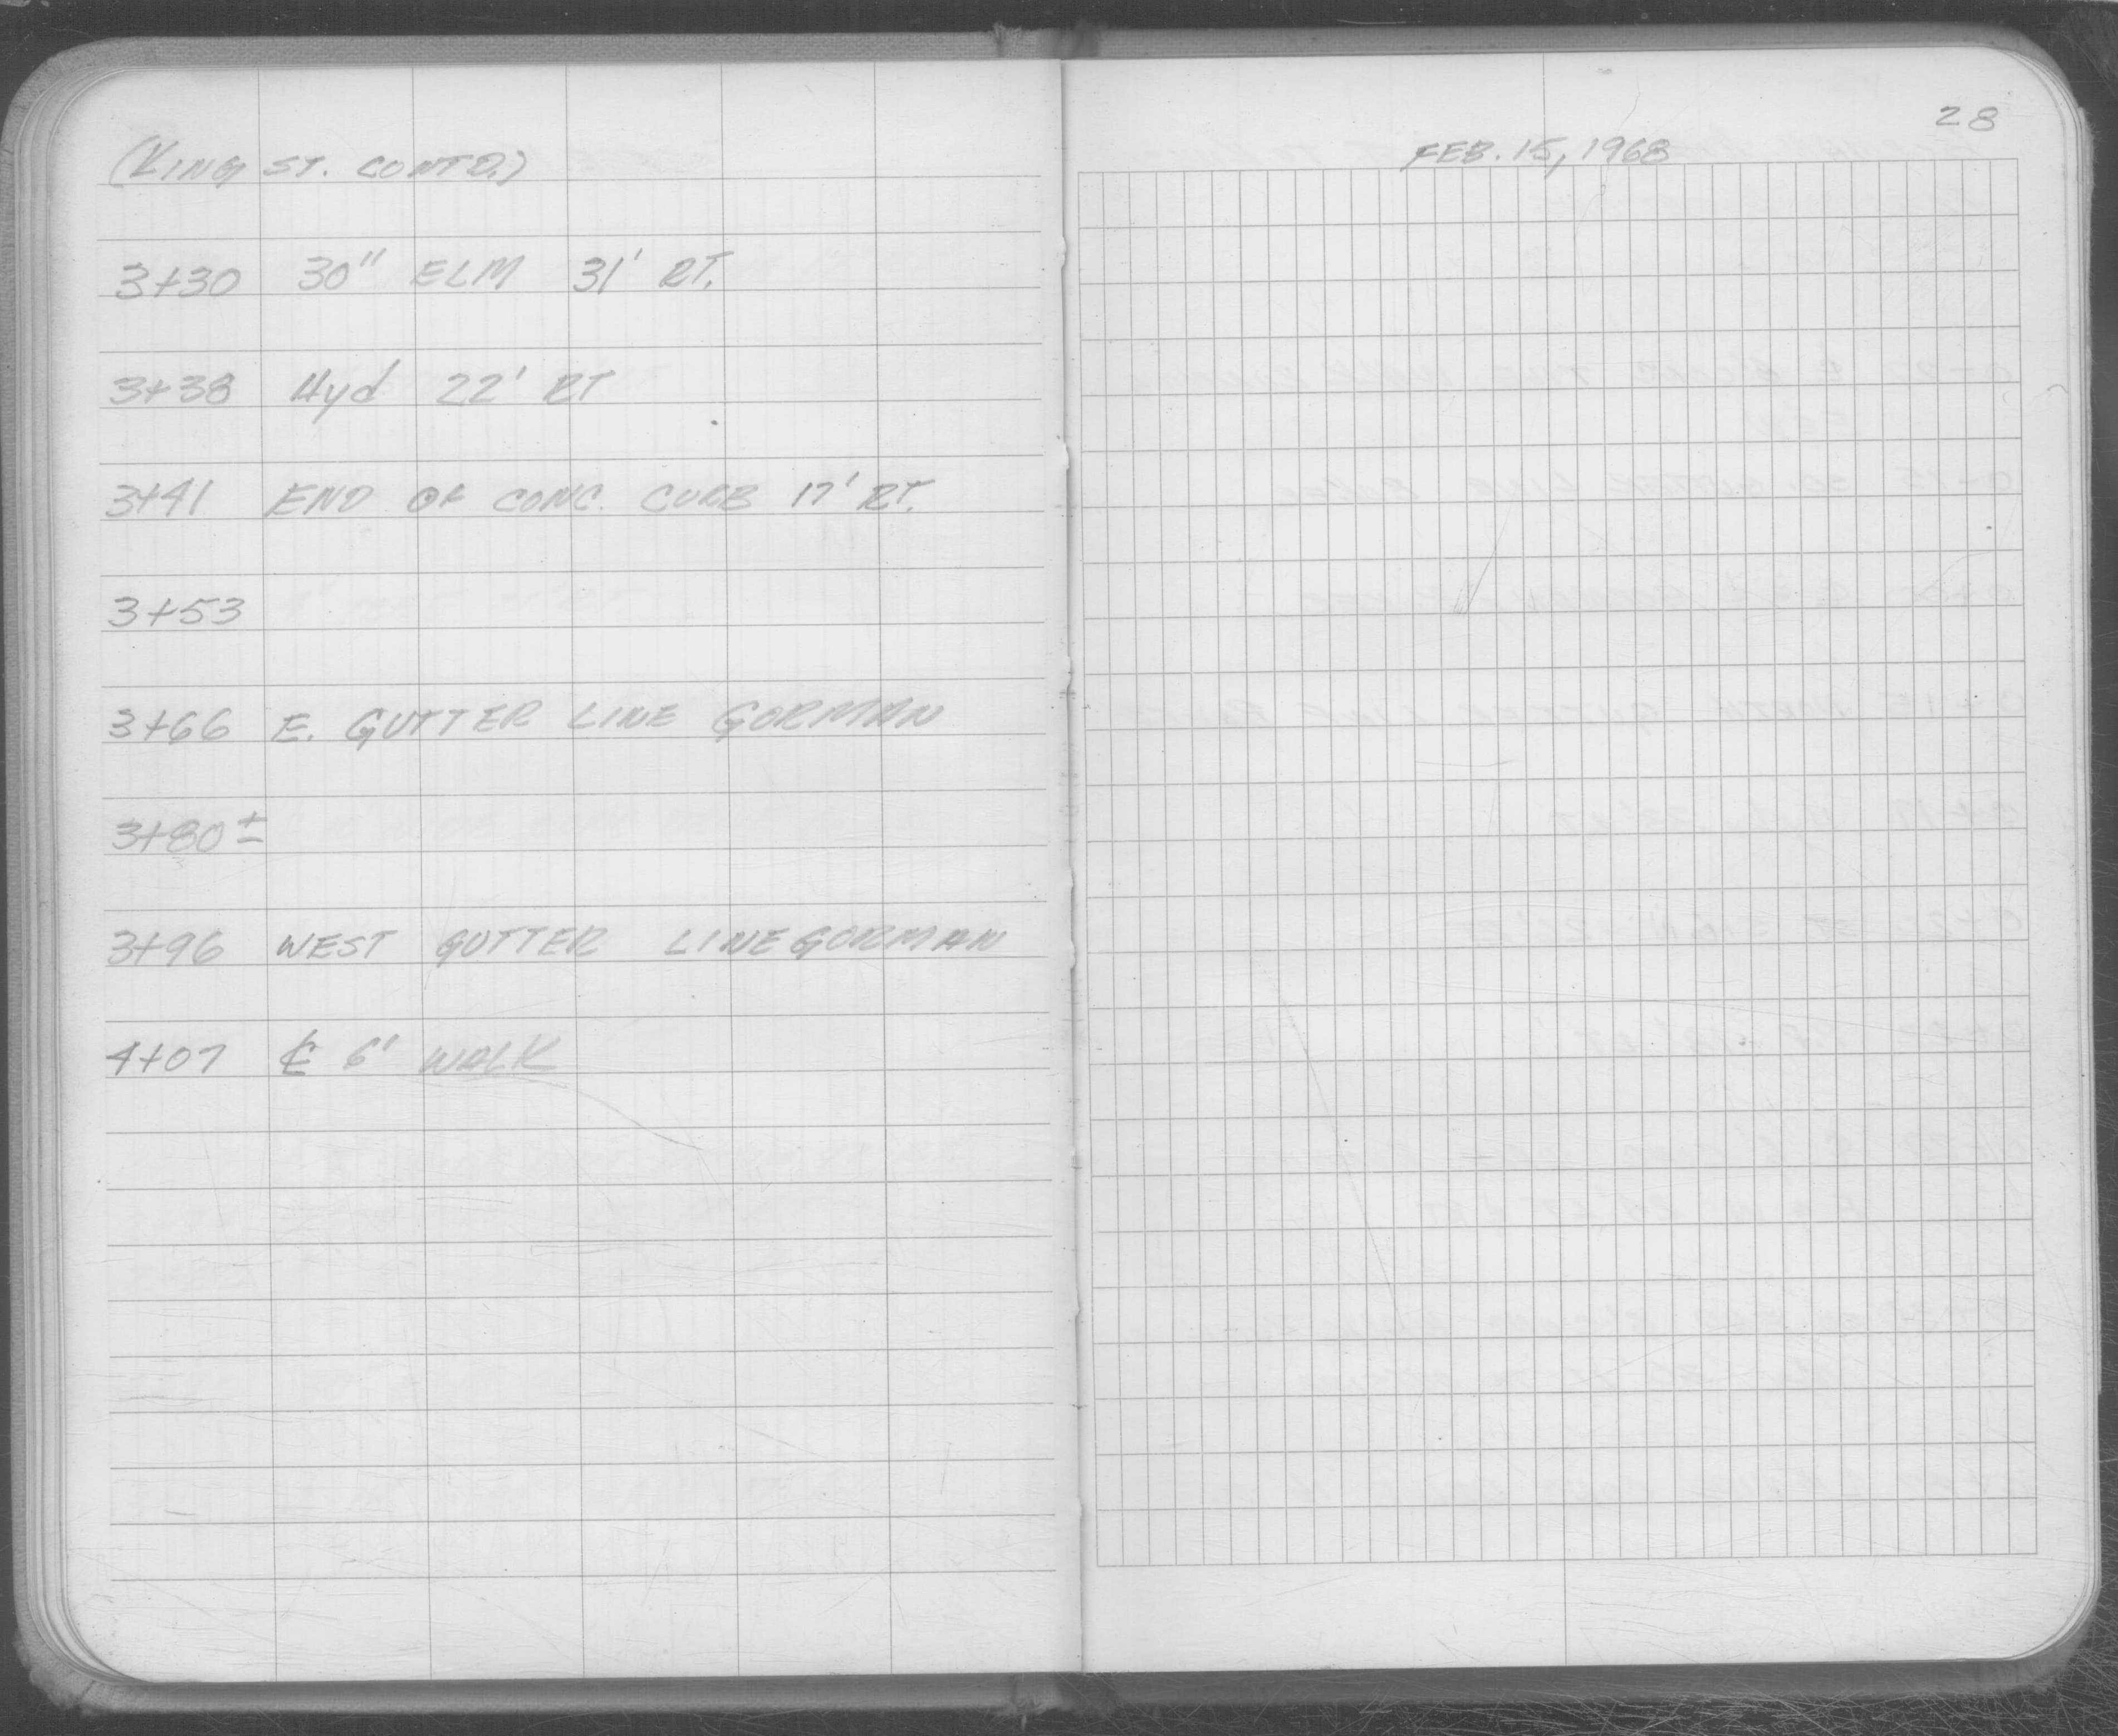 (KING ST. CONTD.)
3+30 30" ELM 31' RT.
3+38 Hyd 22' RT
3+41 END OF CONC. CURB 17' RT.
3+53
3+66 E. GUTTER LINE GORMAN
3+80±
3+96 WEST GUTTER LINE GORMAN
4+07 ℄ 6' WALK
28
FEB. 15, 1968